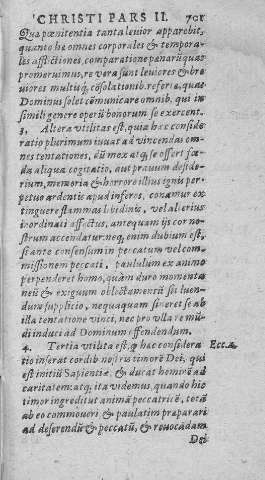 CHRISTI PARS II. 701
Qua pœnitentia tanta levior apparebit,
quanto hæ omnes corporales & tempora-
les afflictiones, comparatione panarū quas
promeruimus, re vera sunt leviores & bre-
viores multūq́, cōsolationib. refertæ, quas
Dominus solet cōmunicare omnib. qui in
simili genere operū bonorum se exercent.
3. Altera utilitas est, quia hæc conside-
ratio plurimum juvat ad vincendas om-
nes tentationes, dū mex atq́, se offert fœ-
da aliqua cogitatio, aut pravum deside-
rium, memoria & horrore illius ignis per-
petuo ardentis apud inferos, conamur ex-
tinguere flammas libidinis, vel alterius
inordinati affectus, antequam ijs cor no-
strum accendatur: neq́, enim dubium est,
si ante consensum in peccatum vel com-
missionem peccati, paululum ex animo
perpenderet homo, quàm duro momenta
neū & exiguum oblectamentū sit luen-
dum supplicio, nequaquam sineret se ab
illa tentatione vinci, nec pro ulla re mū-
di induci ad Dominum offendendum.
4. Tertia utilitas est, q̄ hæc considera Ecc. 2.
tio inserat cordib. nostris timorē Dei, qui
est initiū Sapientiæ, & ducat hominē ad
caritatem: atq́, ita videmus, quando hic
timor ingreditur animā peccatricē, totā
ab eo commoveri & paulatim præparari
ad deserendū & peccatū, & revocādam
Dei